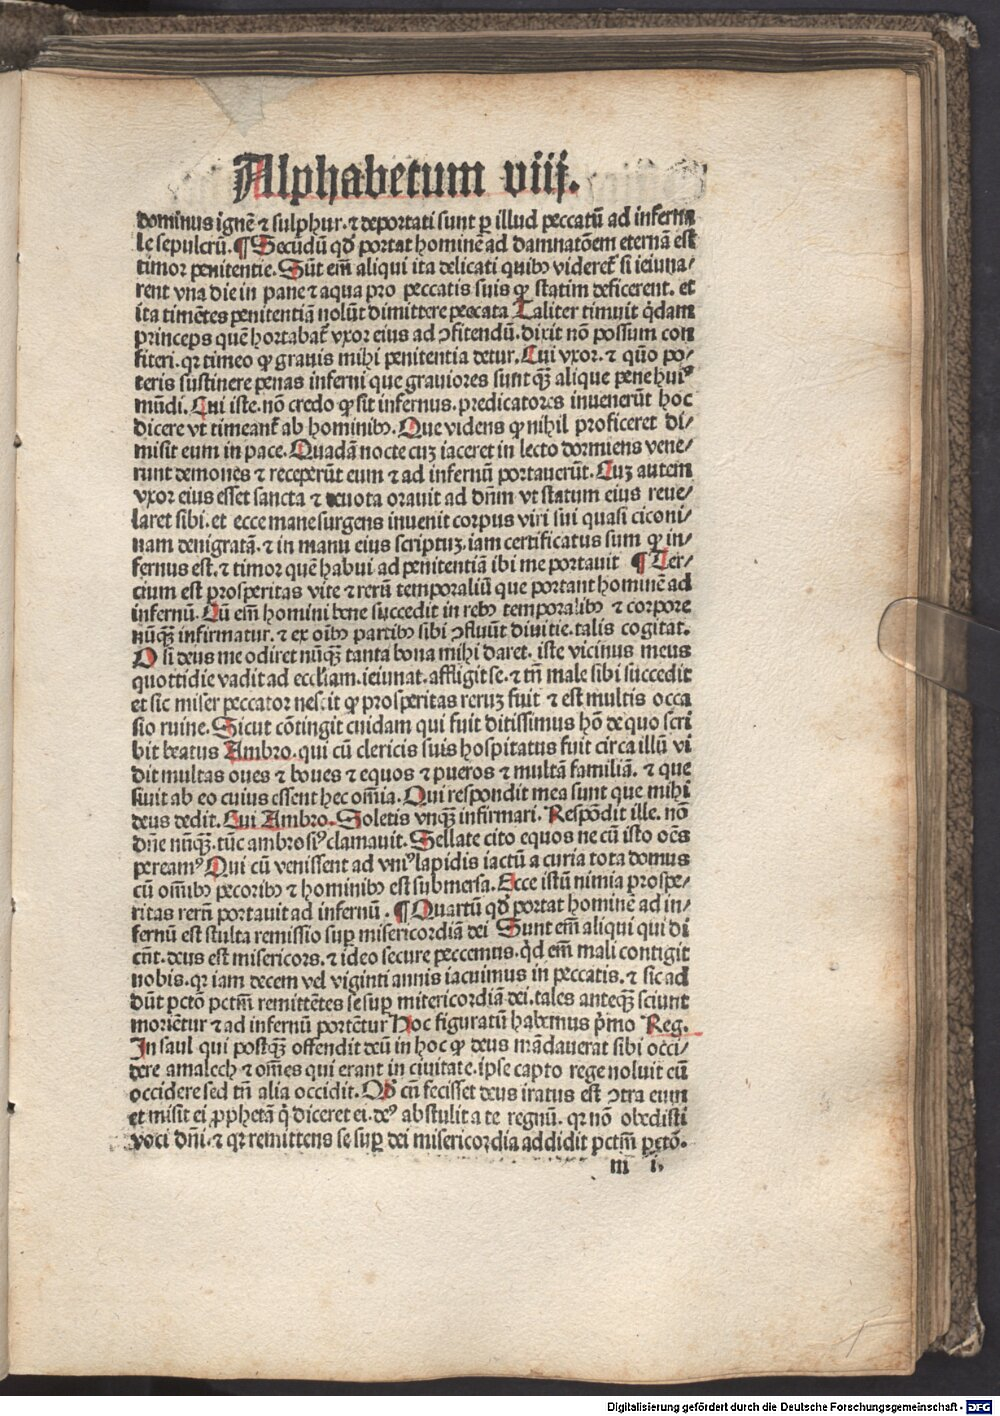 Alphabetum viij.
dominus ignē ⁊ sulphur. ⁊ deportati sunt ꝑ illud peccatū ad inferna
le sepulcrū. ¶ Secūdū qd̕ portat hominē ad damnatōem eternā est
timor penitentie. Sūt em̄ aliqui ita delicati quibꝰ videret̄ si ieiuna/
rent vna die in pane ⁊ aqua pro peccatis suis ꝙ statim deficerent. et
ita timētes penitentiā nolūt dimittere peccata Taliter timuit q̇dam
princeps quē hortabat̄ vxor eius ad ↄfitendū. dixit nō possum con
fiteri. qꝛ timeo ꝙ grauis mihi penitentia detur. Cui vxor. ⁊ quō po/
teris sustinere penas inferni que grauiores sunt qꝫ̄ alique pene huiꝰ
mūdi. Cui iste. nō credo ꝙ sit infernus. predicatores inuenerūt hoc
dicere vt timeant̄ ab hominibꝰ. Que videns ꝙ nihil proficeret di/
misit eum in pace. Quadā nocte cuꝫ iaceret in lecto dormiens vene/
runt demones ⁊ receperūt eum ⁊ ad infernū portauerūt. Cuꝫ autem
vxor eius esset sancta ⁊ deuota orauit ad dn̄m vt statum eius reue/
laret sibi. et ecce mane surgens inuenit corpus viri sui quasi ciconi/
nam denigratā. ⁊ in manu eius scriptuꝫ. iam certificatus sum ꝙ in/
fernus est. ⁊ timor quē habui ad penitentiā ibi me portauit ¶ Ter/
cium est prosperitas vite ⁊ rerū temporaliū que portant hominē ad
infernū. Cū em̄ homini bene succedit in rebꝰ temporalibꝰ ⁊ corpore
nūqꝫ̄ infirmatur. ⁊ ex oībꝰ partibꝰ sibi ↄfluūt diuitie. talis cogitat.
O si deus me odiret nūqꝫ̄ tanta bona mihi daret. iste vicinus meus
quottidie vadit ad eccliam. ieiunat. affligit se. ⁊ tn̄ male sibi succedit
et sic miser peccator nescit ꝙ prosperitas reruꝫ fuit ⁊ est multis occa
sio ruine. Sicut cōtingit cuidam qui fuit ditissimus hō de quo scri
bit beatus Ambro. qui cū clericis suis hospitatus fuit circa illū vi
dit multas oues ⁊ boues ⁊ equos ⁊ pueros ⁊ multā familiā. ⁊ que
siuit ab eo cuius essent hec om̄ia. Qui respondit mea sunt que mihi
deus dedit. Cui Ambro. Soletis vnqꝫ̄ infirmari. Respōdit ille. nō
dn̄e nūqꝫ̄. tūc ambrosiꝰ clamauit. Sellate cito equos ne cū isto oēs
pereamꝰ Qui cū venissent ad vniꝰ lapidis iactū a curia tota domus
cū om̄ibꝰ pecoribꝰ ⁊ hominibꝰ est submersa. Ecce istū nimia prospe/
ritas rerū portauit ad infernū. ¶ Quartū qd̕ portat hominē ad in/
fernū est stulta remissio suꝑ misericordiā dei Sunt em̄ aliqui qui di
cūt. deus est misericors. ⁊ ideo secure peccemus. q̇d em̄ mali contigit
nobis. qꝛ iam decem vel viginti annis iacuimus in peccatis. ⁊ sic ad
dūt pctō pctm̄ remittētes se suꝑ misericordiā dei. tales anteqꝫ̄ sciunt
moriētur ⁊ ad infernū portētur Hoc figuratū habemus p̄mo Reg.
In saul qui postqꝫ̄ offendit deū in hoc ꝙ deus mādauerat sibi occi/
dere amalech ⁊ om̄es qui erant in ciuitate. ipse capto rege noluit eū
occidere sed tn̄ alia occidit. Qd̕ cū fecisset deus iratus est ↄtra eum
et misit ei ꝓphetā q̇ diceret ei. deꝰ abstulit a te regnū. qꝛ nō obedisti
voci dn̄i. ⁊ qꝛ remittens se suꝑ dei misericordia addidit pctm̄ pctō.
m i.
Digitalisierung gefördert durch die Deutsche Forschungsgemeinschaft - DFG